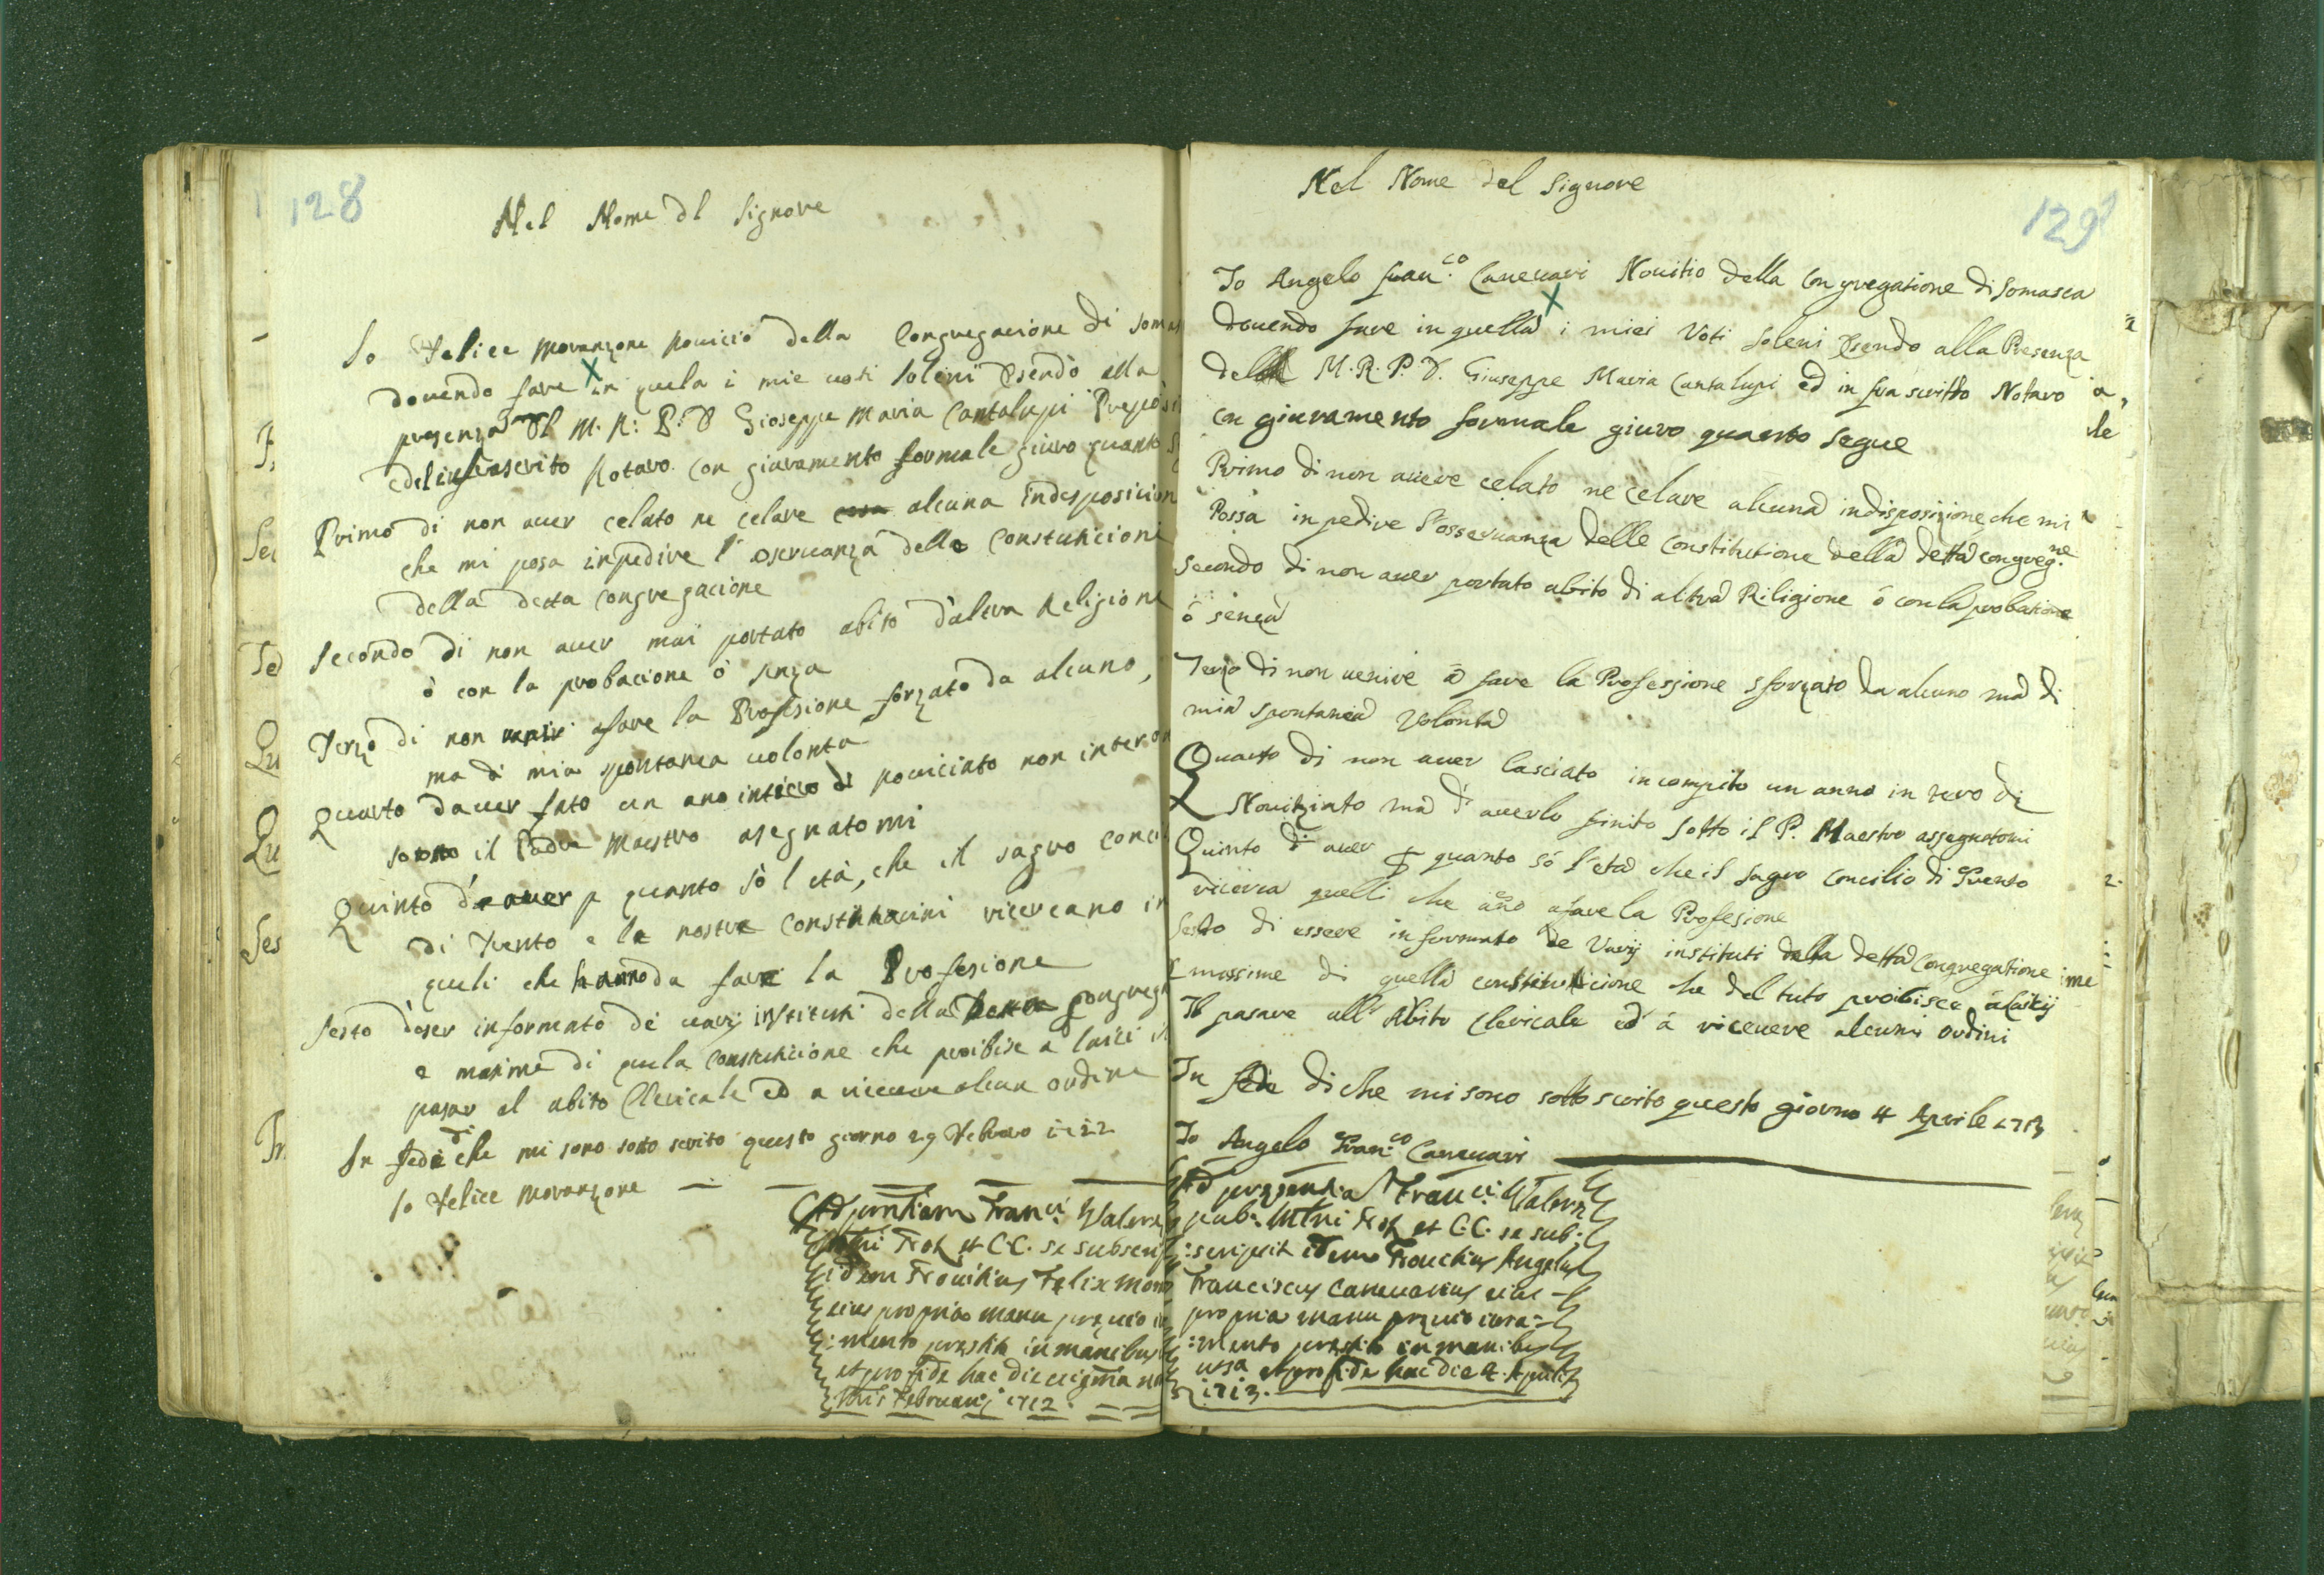 128
Nel Nome dl Signore
Io Felice Moranzone Nouicio della Congregacione di Somas
douendo fare in quela i mie uoti soleni esendo alla
presenza dl M. R: P: D Gioseppe Maria Cantalupi Preposi
e del infrascrito Notaro con giuramento formale giuro quanto
Primo di non auer celato ne celare alcuna indisposicion
che mi posa inpedire l'oseruanza delle Constitucioni
della detta congregacione
Secondo di non auer mai portato abito d'altra Religione
ò con la probacione ò senza
Terzo di non uenir afare la Profesione forzato da alcuno,
ma di mia spontanea uolonta
Quarto dauer fato un ano intiero di nouiciato non interot
sotto il Padre Maestro asegnatomi
Quinto d'auer p quanto sò l età, che il sagro conci
di Trento e le nostre Constitucini ricercano in
queli che hanno da fare la Profesione
Sesto d'eser informato dé uarij instituti della detta Congreg
e masime di quela constitucione che proibise a laici il
pasar al abito Clericale ed a riceuere alcun ordine
In fede di che mi sono soto scrito questo giorno 29 Febraro 1712
Io Felice Moranzone
Ad pñtiam Franci Walera
Not et C.C. se subscri
idem Nouitius Felix Mora
eius propria manu preuio iu
:mento prestito in manibus
et pro fide hac die uigma no
Februarij 1712.
129
Nel Nome del Signore
Io Angelo Fran.co Caneuari Nouitio della Congregatione di Somasca
douendo fare in quella i miei Voti soleni esendo alla Presenza
del M. R. P. D. Giuseppe Maria Cantalupi ed in fra scritto Notaro
con giuramento formale giuro quanto segue
Primo di non auere celato ne celare alcuna indisposizione che mi
Possa inpedire l'osseruanza delle Constitutione della detta congreg.ne
Secondo di non auer portato abito di altra Riligione ó con la probatione
ó senza
Terzo di non uenire à fare la Professione sforzato da alcuno ma di
mia spontanea Volonta
Quarto di non auer lasciato incompito un anno in tero di
Nouitziato ma d'auerlo finito sotto il P. Maestro assegnatomi
Quinto di auer p quanto só l'eta che il sagro Concilio di Trento
ricerca quelli che ano afare la Profesione
Sesto di essere informato de Varij instituti della detta Congregatione
massime di quella constitutcione che del tuto proibisce á laicij
Il pasare all' Abito Clericale ed á riceuere alcuni ordini
In fede di che mi sono sotto scrito questo giorno 4 Aprile 1713
Io Angelo Fran.co Caneuari
Ad presentia Franci Walera
pub: Mlni Not et C.C. se sub:
:scripsit idem Nouitius Angelus
Franciscus Caneuarius eius
propria manu preuio iura:
:mento prestito in manibus
et pro fide hac die 4. Aprilis
1713.